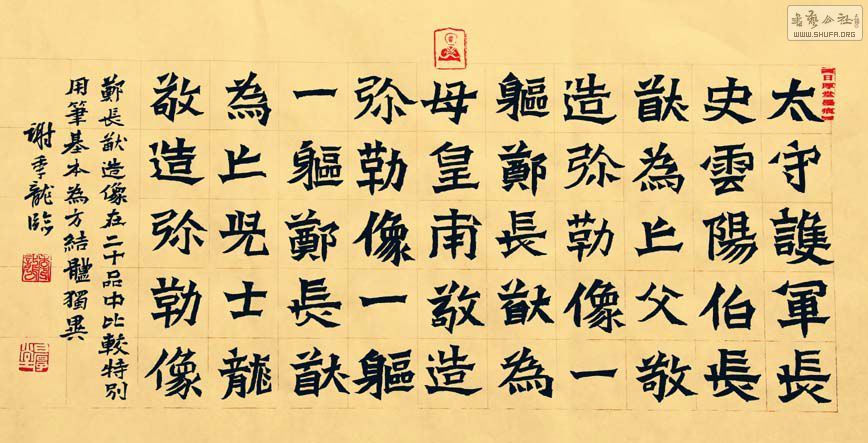 太守護軍長
史雲陽伯長
猷為亡父敬
造弥勒像一
軀鄭長猷為
母皇甫敬造
弥勒像一軀
一軀鄭長猷
為亡児士龍
敬造弥勒像
鄭長猷造像在二十品中比較特別
用筆基本為方結體獨異
謝季龍臨
WWW.SHUFA.ORG